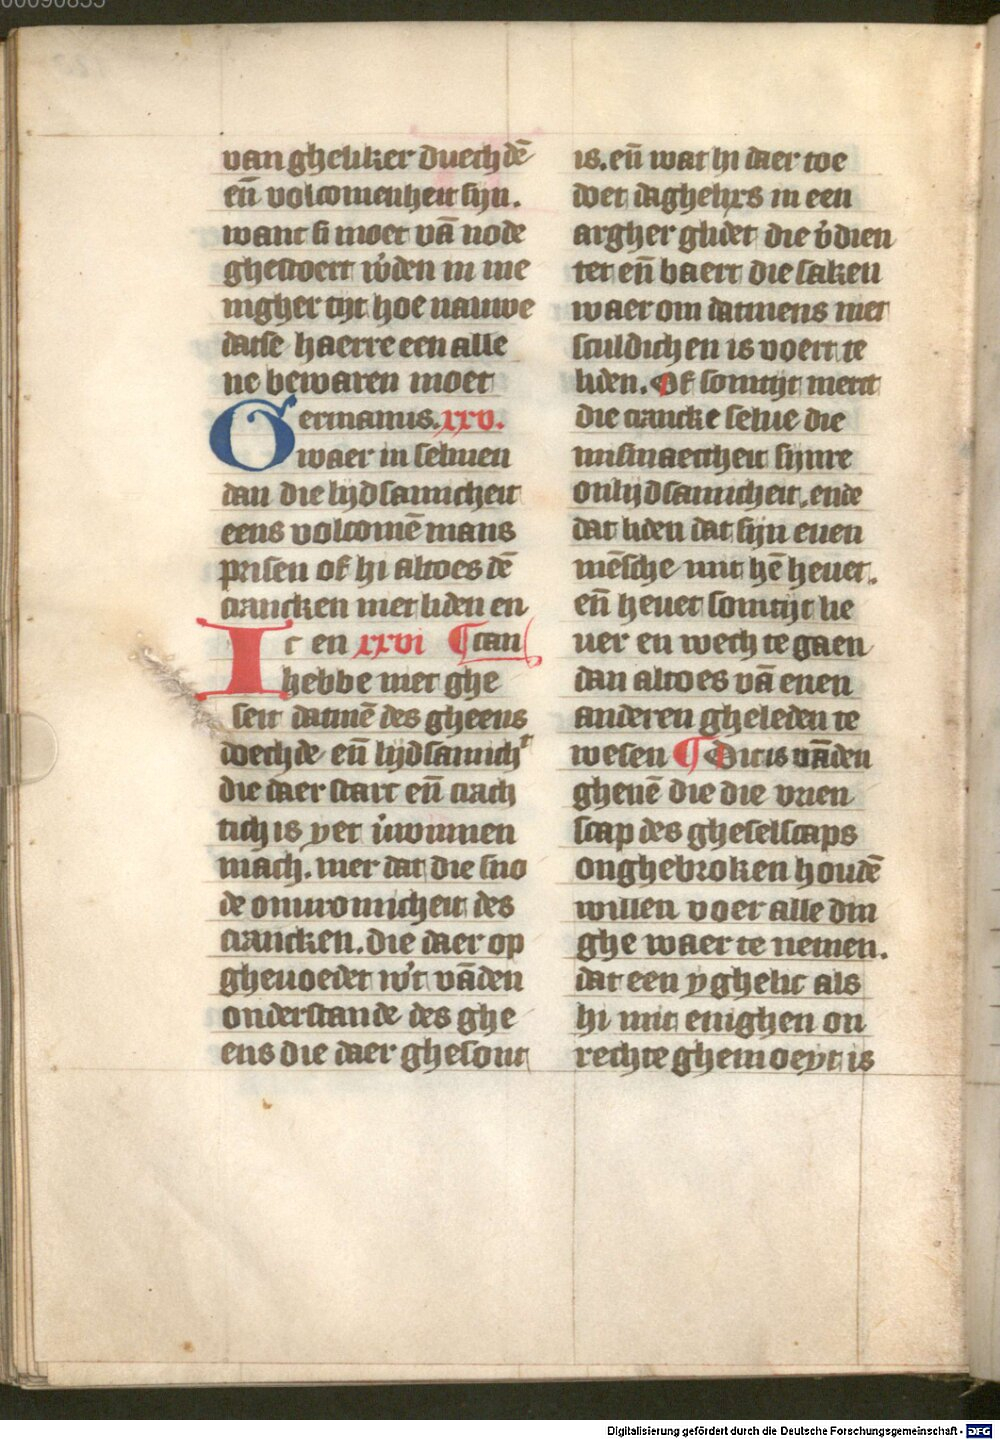 van gheliker duechdē
eñ volcomenheit sijn.
want si moet vā node
ghestoert w̓den in me
nigher tijt hoe nauwe
datse haerre een alle
ne bewaren moet
Germanus. xxv.
waer in sellmen
dan die lijdsamicheit
eens volcomē mans
prisen of hi altoes dē
crancken niet liden en
Ic en xxvi ¶ can
hebbe niet ghe
seit datmē des gheens
doechde eñ lijdsamichᵗ
die daer starc eñ crach
tich is yet v̓winnen
mach. mer dat die sno
de onvromicheit des
crancken. die daer op
gheuoedet w̓t vāden
onderstande des ghe
ens die daer ghesont
is. eñ wat hi daer toe
doet daghelixs in een
argher glidet die v̓dien
tet eñ baert die saken
waer om datmens niet
sculdich en is voert te
liden. Of somtijt merct
die crancke selue die
mismaectheit sijnre
onlijdsamicheit. ende
dat liden dat sijn euen
mēsche mit hē heuet.
eñ heuet somtijt lie
uer en wech te gaen
dan altoes vā enen
anderen gheleden te
wesen ¶ Dit is vāden
ghenē die die vrien
scap des ghesellscaps
onghebroken houdē
willen voer alle din
ghe waer te nemen.
dat een yghelic als
hi mit enighen on
rechte ghemoeyt is
Digitalisierung gefördert durch die Deutsche Forschungsgemeinschaft - DFG